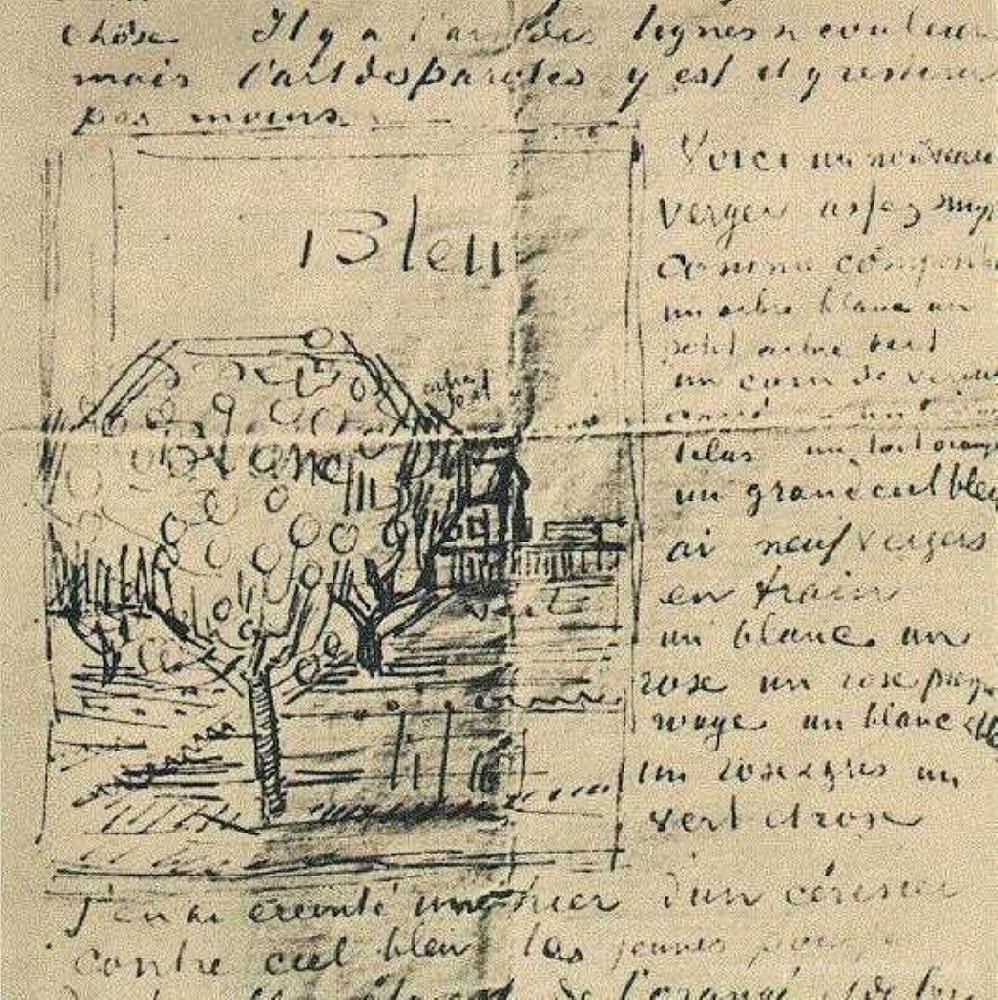 chose. Il y a l'art des lignes & couleurs
mais l'art des paroles y est et y restera
pas moins.
Bleu
blanc
vert
Voici un nouveau
verger assez simp
comme composi
un arbre blanc un
petit arbre vert
un coin de verdu
carré – un
lilas un toit orang
un grand ciel bleu
ai neuf vergers
en train
un blanc. un
rose un rose presq
rouge un blanc et
un rose & gris un
vert et rose
J'en ai éreinté un hier d'un cérisier
contre ciel bleu les jeunes
de l'orangé & de l'or